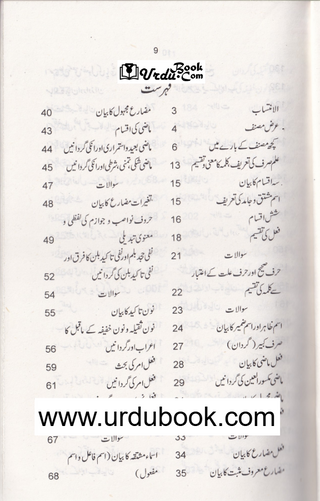 9
UrduBook.Com
فہرست
الانتساب 3
عرض مصنف 4
کچھ مصنف کے بارے میں 6
علم صرف کی تعریف، کلمہ کا معنی تقسیم 13
سہ اقسام کا بیان 15
اسم مشتق و جامد کی تعریف 15
شش اقسام 16
فعل کی تقسیم 18
سوالات 21
حرف صحیح اور حرف علت کے اعتبار
سے کلمہ کی تقسیم 22
سوالات 23
اسم ظاہر اور اسم ضمیر کا بیان 24
صرف کبیر (گردان) 27
فعل ماضی کا بیان 28
ماضی مکسور العین کی گردانیں 29
سوالات 33
فعل مضارع کا بیان 34
مضارع معروف مثبت کا بیان 35
مضارع مجہول کا بیان 40
ماضی کی اقسام 43
ماضی بعید و استمراری اور انکی گردانیں 44
ماضی شکی، تمنی، شرطی اور انکی گردانیں 45
سوالات 47
تغیرات مضارع کا بیان 48
حروف نواصب و جوازم کی لفظی و
معنوی تبدیلی 49
نفی تجدبلم اور نفی تاکید بلن کا فرق اور
نفی تاکید بلن کی گردانیں 52
سوالات 54
نون تاکید کا بیان 55
نون ثقیلہ و نون خفیفہ کے ماقبل کا
اعراب اور گردانیں 56
فعل امر کی بحث 59
فعل امر کی گردانیں 61
www.urdubook.com
سوالات 67
اسماء مشتقہ کا بیان (اسم فاعل و اسم
مفعول) 68